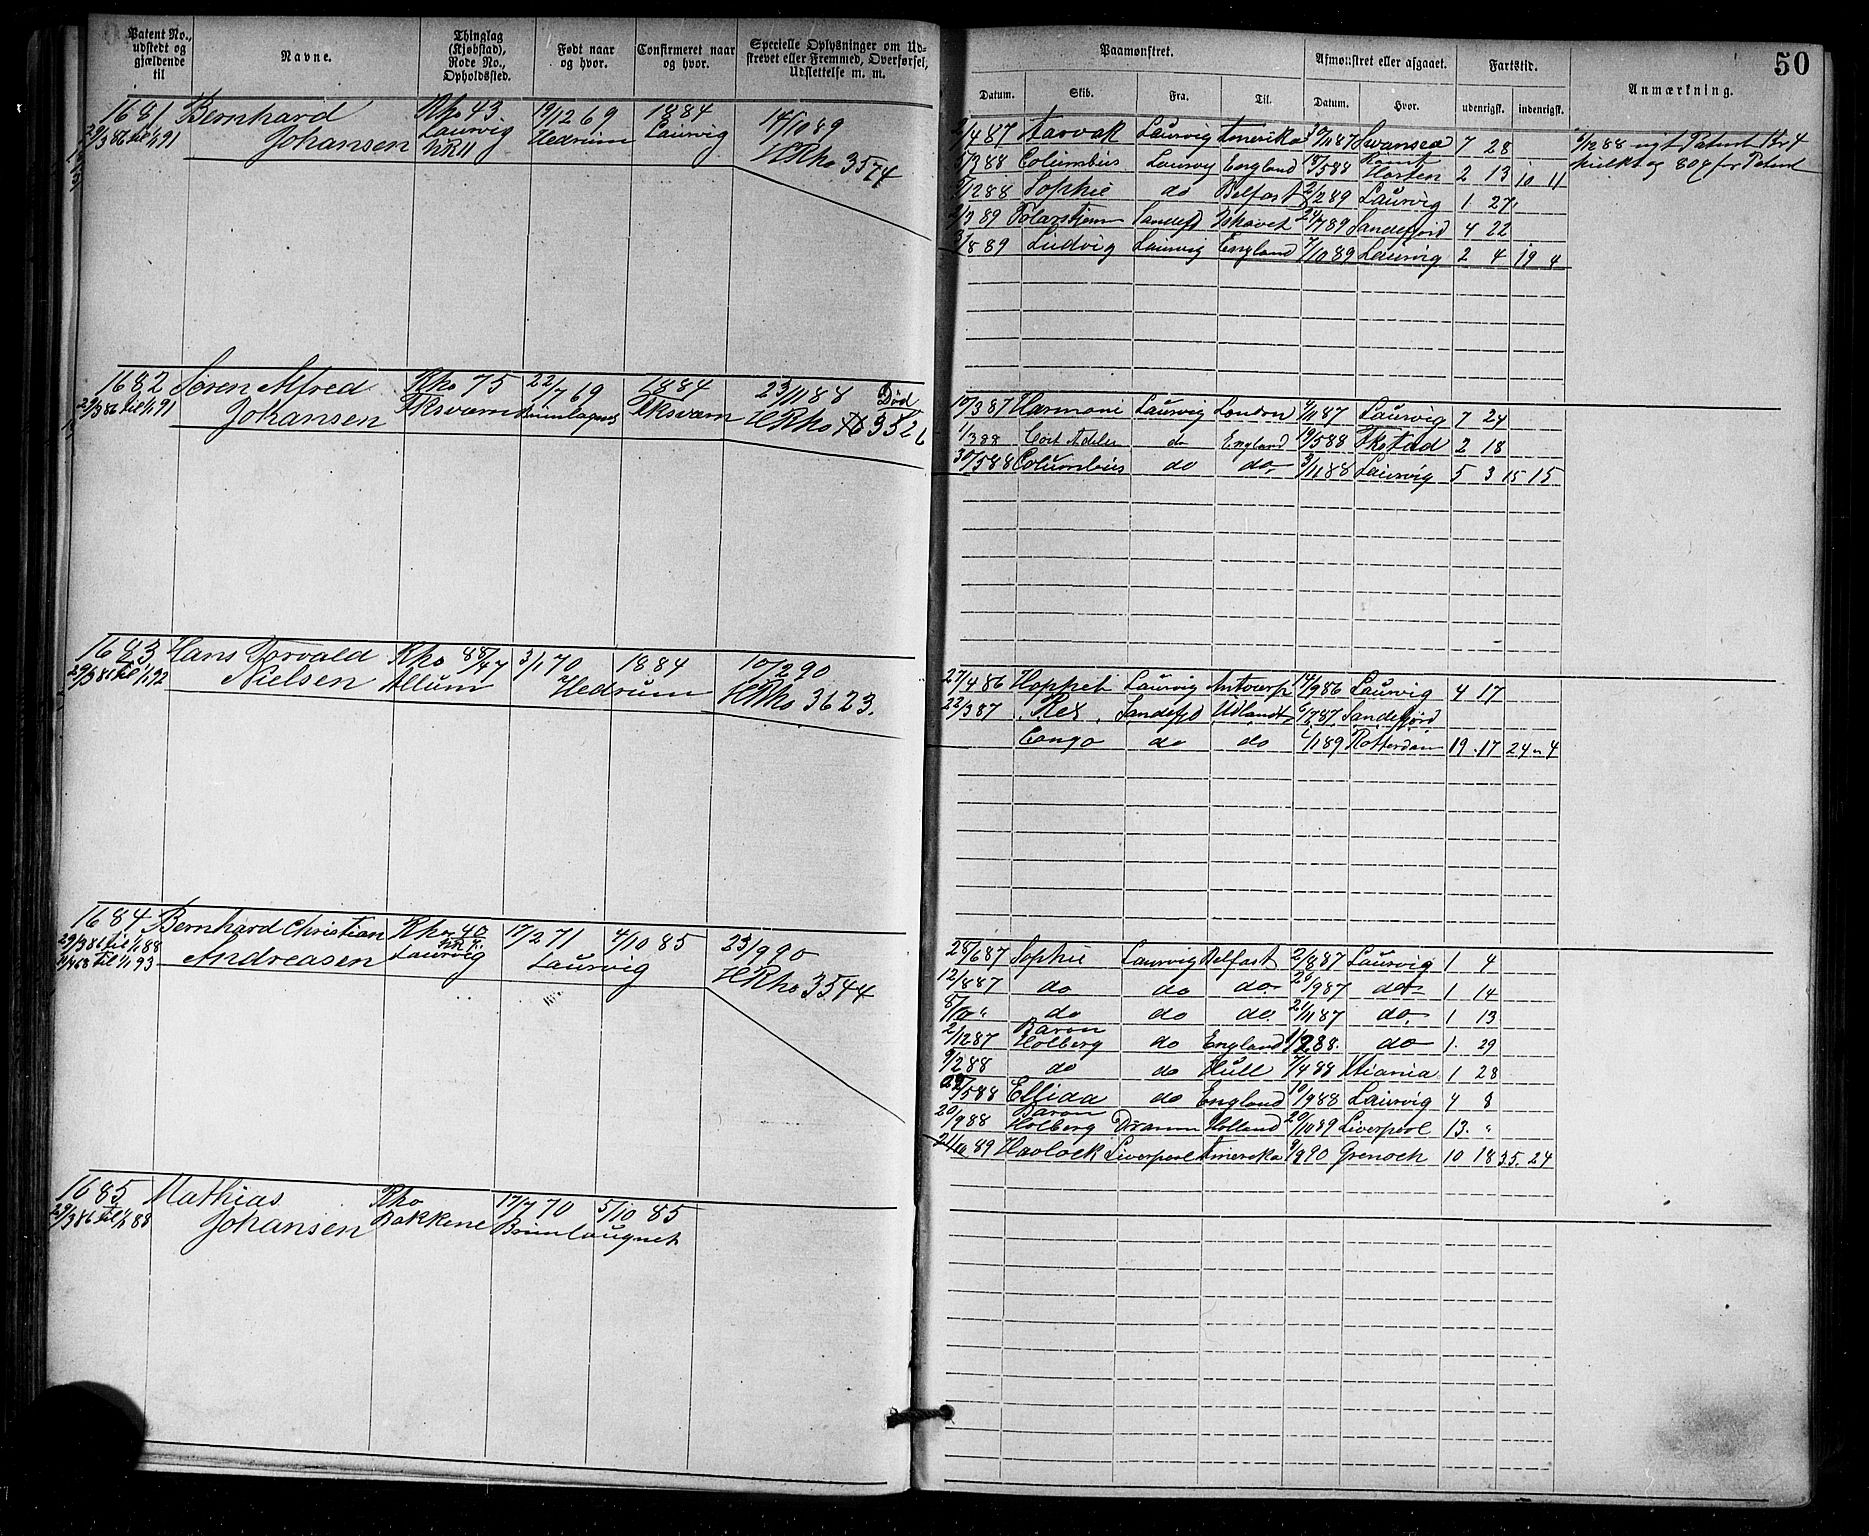 50
Patent No., udstedt og gjældende til
Navne.
Thinglag (Kjøbstad), Rode No., Opholdssted.
Født naar og hvor.
Confirmeret naar og hvor.
Specielle Oplysninger om Udstrevet eller Fremmed, Overførsel, Udslettelse m. m.
Paamønstret.
Afmønstret eller afgaaet.
Fartstid.
Anmærkning.
Datum. Skib. Fra. Til. Datum. Hvor. udenrigsk. indenrigsk.
1681 Bernhard Rho 43. 19/12 69 1884 14/10 89
29/3 86 til 1/1 91 Johansen Laurvig Hedrum Laurvig HRho 3574
2/4 87 Aarvak Laurvig Amerika 30/11 87 Swansea 7 28
5/3 88 Columbus Laurvig England 18/5 88 Horten 2 13 10 11
/12 88 Sophie do Belfast 2/2 89 Laurvig 1 27
2/3 89 Polarstjern Sandefj Ishavet 24/7 89 Sandefjord 4 22
3/8 89 Ludvig Laurvig England 7/10 89 Laurvig 2 4 19 4
/12 88 nyt Patent
1682 Søren Alfred Rho 75 22/7 69 1884 23/11 88 Død
29/3 86 til 1/1 91 Johansen Fksværn Brunlagnes Fksværn HRho 3526
10/3 87 Harmoni Laurvig London 9/11 87 Laurvig 7 24
1/3 88 Cort Adeler do England 19/5 88 Fkstad 2 18
30/5 88 Columbus do do 3/11 88 Laurvig 5 3 15 15
1683 Hans Torvald Rho 88/47 3/1 70 1884 10/2 90
29/3 86 til 1/1 92 Nielsen Allum Hedrum HRho 3623.
27/4 86 Hoppet Laurvig Antwerp 14/9 86 Laurvig 4 17
22/3 87 Rex Sandefjd Udlandt /7 87 Sandefjord
Congo do do /1 89 Rotterdam 19 17 24 4
1684 Bernhard Christian Rho 40 17/2 71 4/10 85 23/9 90
29/3 86 til 1/1 88 Andreasen Laurvig Laurvig HRho 3544
til 1/1 93
28/6 87 Sophie Laurvig Belfast 2/8 87 Laurvig 1 4
12/8 87 do do do 26/9 87 do 1 14
8/10 " do do do. 21/11 87 do. 1 13
2/12 87 Baron Holberg do England 88. do 1. 29
9/2 88 do do Hull 7/4 88 Xtiania 1 28
29/5 88 Ellida do England 10/9 88 Laurvig 4 8
20/9 88 Baron Holberg Dramm Holland 20/10 89 Liverpool 13. "
24/10 89 Havlock Liverpool Amerika 9/9 90 Grenock 10 18 35. 24
1685 Mathias Rho 17/7 70 5/10 85
29/3 86 til 1/1 88 Johansen Bakkene Brunlaugnet